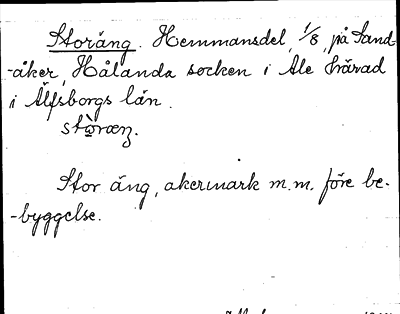 Storäng. Hemmansdel, 1/8, på Sand-
-åker, Hålanda socken i Ale härad
i Älfsborgs län.
Stor äng, akermark m.m. före be-
-byggelse.